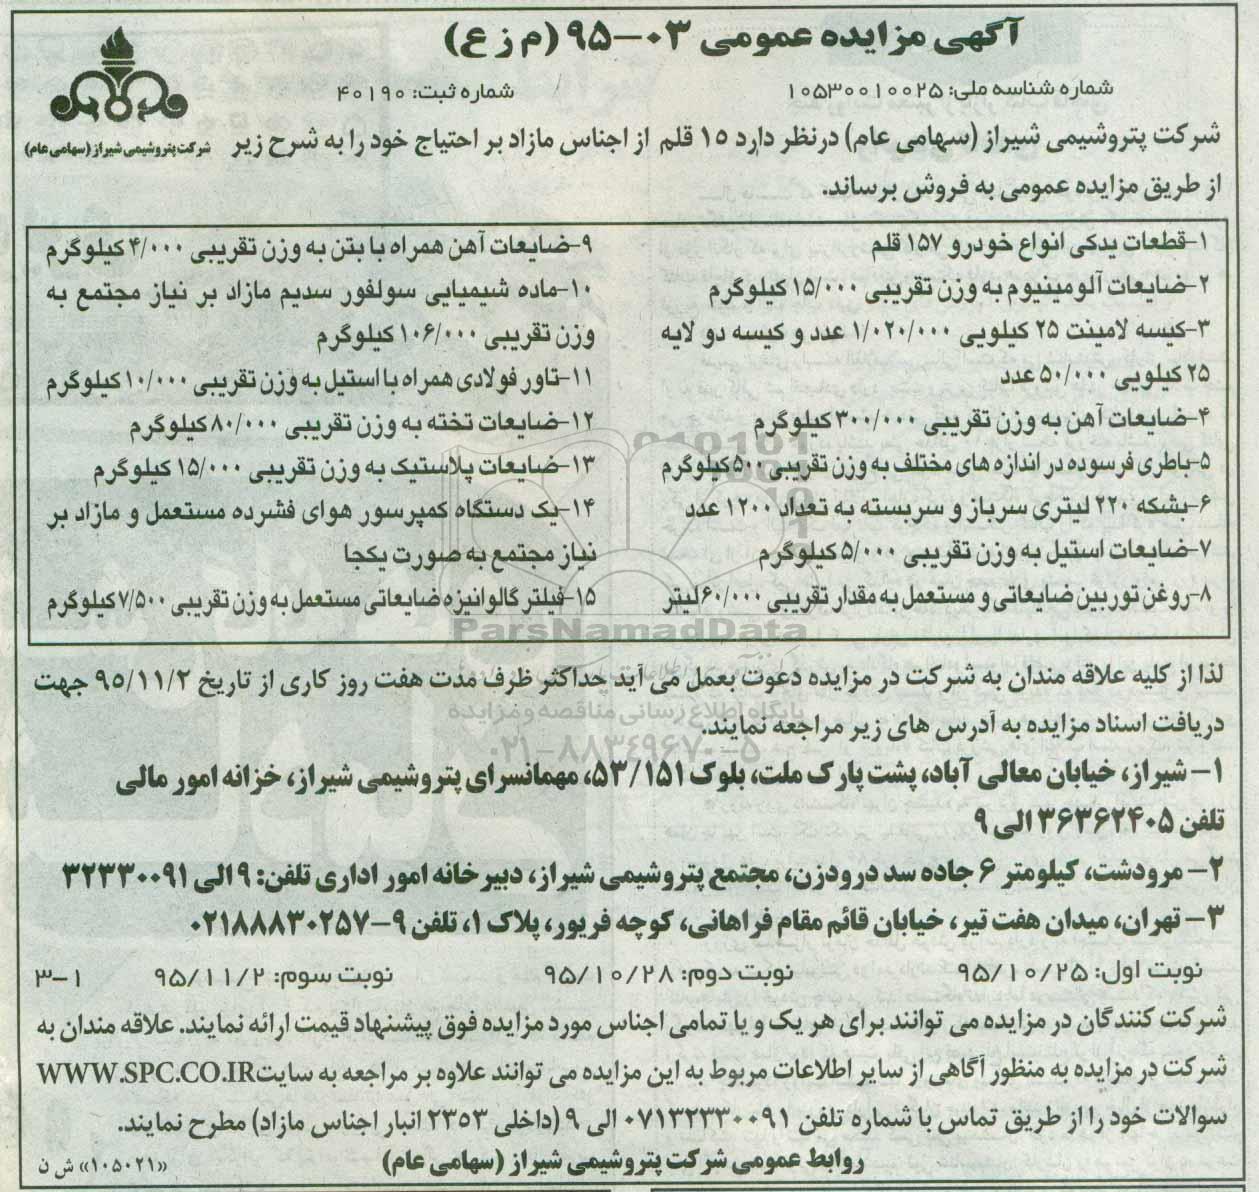 آگهی مزایده عمومی ۰۳-۹۵ (م ز ع)
شماره شناسه ملی: ۱۰۵۳۰۰۱۰۰۲۵
شماره ثبت: ۴۰۱۹۰
شرکت پتروشیمی شیراز (سهامی عام)
شرکت پتروشیمی شیراز (سهامی عام) درنظر دارد ۱۵ قلم از اجناس مازاد بر احتیاج خود را به شرح زیر
از طریق مزایده عمومی به فروش برساند.
۱-قطعات یدکی انواع خودرو ۱۵۷ قلم
۲-ضایعات آلومینیوم به وزن تقریبی ۱۵/۰۰۰ کیلوگرم
۳-کیسه لامینت ۲۵ کیلویی ۱/۰۲۰/۰۰۰ عدد و کیسه دو لایه
۲۵ کیلویی ۵۰/۰۰۰ عدد
۴-ضایعات آهن به وزن تقریبی ۳۰۰/۰۰۰ کیلوگرم
۵-باطری فرسوده در اندازه های مختلف به وزن تقریبی ۵۰۰ کیلوگرم
۶-بشکه ۲۲۰ لیتری سرباز و سربسته به تعداد ۱۲۰۰ عدد
۷-ضایعات استیل به وزن تقریبی ۵/۰۰۰ کیلوگرم
۸-روغن توربین ضایعاتی و مستعمل به مقدار تقریبی ۶۰/۰۰۰ لیتر
۹-ضایعات آهن همراه با بتن به وزن تقریبی ۴/۰۰۰ کیلوگرم
۱۰-ماده شیمیایی سولفور سدیم مازاد بر نیاز مجتمع به
وزن تقریبی ۱۰۶/۰۰۰ کیلوگرم
۱۱-تاور فولادی همراه با استیل به وزن تقریبی ۱۰/۰۰۰ کیلوگرم
۱۲-ضایعات تخته به وزن تقریبی ۸۰/۰۰۰ کیلوگرم
۱۳-ضایعات پلاستیک به وزن تقریبی ۱۵/۰۰۰ کیلوگرم
۱۴-یک دستگاه کمپرسور هوای فشرده مستعمل و مازاد بر
نیاز مجتمع به صورت یکجا
۱۵-فیلتر گالوانیزه ضایعاتی مستعمل به وزن تقریبی ۷/۵۰۰ کیلوگرم
ParsNamadData
لذا از کلیه علاقه مندان به شرکت در مزایده دعوت بعمل می آید حداکثر ظرف مدت هفت روز کاری از تاریخ ۹۵/۱۱/۲ جهت
دریافت اسناد مزایده به آدرس های زیر مراجعه نمایند.
پایگاه اطلاع رسانی مناقصه و مزایده
۰۲۱-۸۸۳۴۹۶۷۰-۵
۱- شیراز، خیابان معالی آباد، پشت پارک ملت، بلوک ۵۳/۱۵۱، مهمانسرای پتروشیمی شیراز، خزانه امور مالی
تلفن ۳۶۳۶۲۴۰۵ الی ۹
۲- مرودشت، کیلومتر ۶ جاده سد درودزن، مجتمع پتروشیمی شیراز، دبیرخانه امور اداری تلفن: ۹ الی ۳۲۳۳۰۰۹۱
۳- تهران، میدان هفت تیر، خیابان قائم مقام فراهانی، کوچه فریور، پلاک ۱، تلفن ۹-۰۲۱۸۸۸۳۰۲۵۷
نوبت اول: ۹۵/۱۰/۲۵ نوبت دوم: ۹۵/۱۰/۲۸ نوبت سوم: ۹۵/۱۱/۲ ۳-۱
شرکت کنندگان در مزایده می توانند برای هر یک و یا تمامی اجناس مورد مزایده فوق پیشنهاد قیمت ارائه نمایند. علاقه مندان به
شرکت در مزایده به منظور آگاهی از سایر اطلاعات مربوط به این مزایده می توانند علاوه بر مراجعه به سایت WWW.SPC.CO.IR
سوالات خود را از طریق تماس با شماره تلفن ۰۷۱۳۲۳۳۰۰۹۱ الی ۹ (داخلی ۲۳۵۳ انبار اجناس مازاد) مطرح نمایند.
روابط عمومی شرکت پتروشیمی شیراز (سهامی عام)
«۱۰۵۰۲۱» ش ن